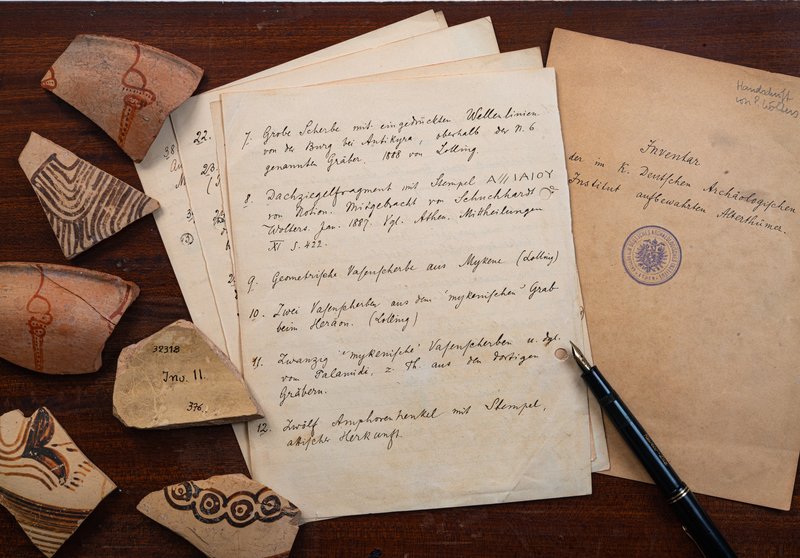 7. Grobe Scherbe mit eingedrückten Wellenlinien
von der Burg bei Antikyra, oberhalb der N. 6
genannten Gräber. 1888 von Lolling
8. Dachziegelfragment mit Stempel Α/// ΙΑΙΟΥ
von Notion. Mitgebracht von Schuchhardt
Wolters. Jan. 1887. Vgl. Athen. Mittheilungen
XI S. 422.
9. Geometrische Vasenscherbe aus Mykene (Lolling)
10. Zwei Vasenscherben aus dem "mykenischen" Grab
beim Heraion. (Lolling)
11. Zwanzig "mykenische" Vasenscherben u. dgl.
vom Palamidi, z. Th. aus den dortigen
Gräbern.
12. Zwölf Amphorenhenkel mit Stempel,
attischer Herkunft.
22.
23.
38
Handschrift
von P. Wolters
Inventar
der im K. Deutschen Archäologischen
Institut aufbewahrten Alterthümer.
32318
Inv. 11.
376.